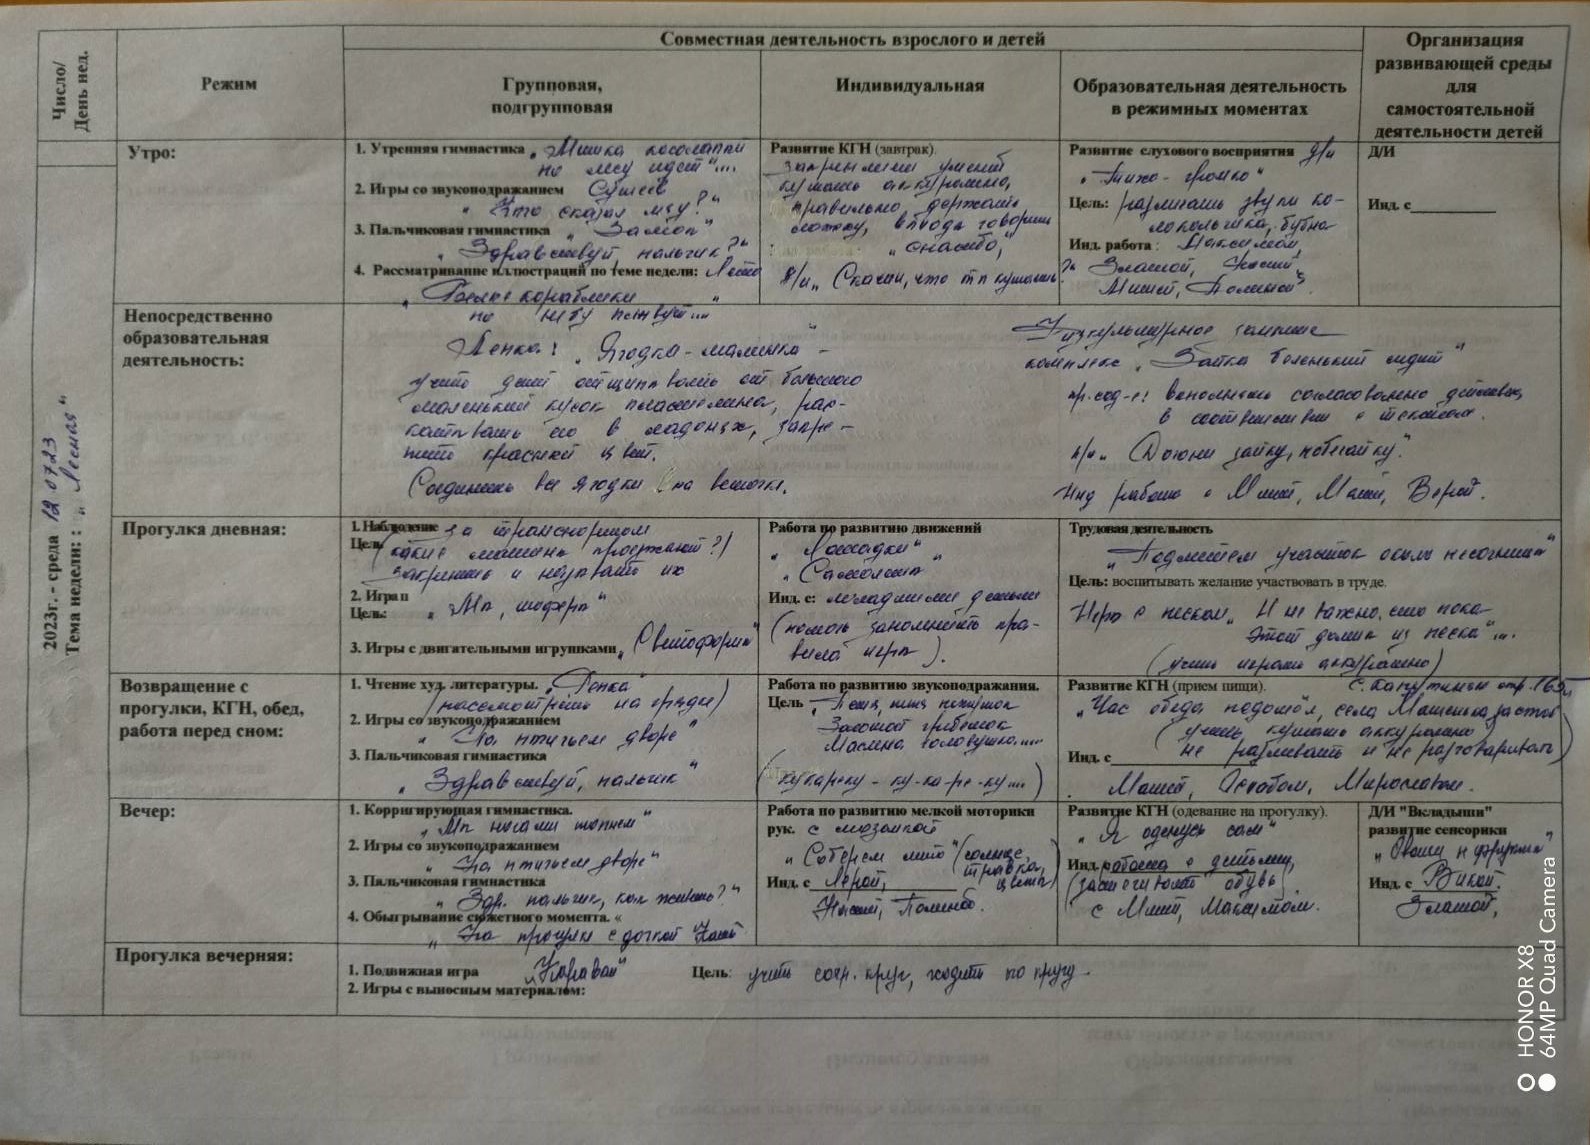 Число/
День нед.
Режим
Совместная деятельность взрослого и детей
Групповая,
подгрупповая
Индивидуальная
Образовательная деятельность
в режимных моментах
Организация
развивающей среды
для
самостоятельной
деятельности детей
2023г. - среда 12 07 23
Тема недели: : „Лесная"
Утро:
1. Утренняя гимнастика „Мишка косолапый
по лесу идет"...
2. Игры со звукоподражанием Сутеев
„Кто сказал мяу?"
3. Пальчиковая гимнастика „Замок"
„Здравствуй, пальчик?"
4. Рассматривание иллюстраций по теме недели: Лето
„Белые кораблики
по небу плывут..."
Развитие КГН (завтрак).
умений
кушать аккуратно,
правильно держать
ложку, говорить
„спасибо„
„Скажи, что ты кушаешь?"
Развитие слухового восприятия д/и
„Тихо-громко"
Цель: различать звуки ко-
локольчика, бубна
Инд. работа : Максимом,
Златой,
Мишей, Полиной
Д/И
Инд. с
Непосредственно
образовательная
деятельность:
Лепка: „Ягодка-малинка"-
учить детей отщипывать от большого
маленький кусок пластилина, рас-
катывать его в ладонях, закре-
пить красный цвет.
Соединить все ягодки на веточке.
Физкультурное занятие
комплекс „Зайка беленький сидит"
пр.сод-е: выполнять согласовано действия,
в соответствии с текстом.
п/и „Догони зайку, побегайку".
Инд работа с Мишей, Машей, Верой.
Прогулка дневная:
1.Наблюдение за транспортом
Цель (какие машины проезжают?)
закрепить и называть их
2. Игра п
Цель: „Мы, шоферы"
3. Игры с двигательными игрушками „Светофорик"
Работа по развитию движений
„Лошадки"
„Самолеты"
Инд. с: младшими детьми
(помочь запомнить пра-
вила игры).
Трудовая деятельность
„Подметем участок около песочницы"
Цель: воспитывать желание участвовать в труде.
Игра с песком „И не важно, что пока
этот домик из песка"...
(учить играть аккуратно)
Возвращение с
прогулки, КГН, обед,
работа перед сном:
1. Чтение худ. литературы. „Репка"
2. Игры со звукоподражанием
„На птичьем дворе"
3. Пальчиковая гимнастика
„Здравствуй, пальчик"
Работа по развитию звукоподражания.
Цель „Петя, петя петушок
Золотой гребешок
Масляна головушка.....
(кукареку - ку-ка-ре-ку...)
Развитие КГН (прием пищи). с. Капутикян стр.165
„Час обеда подошёл, села Машенька за стол
(учить кушать аккуратно
не разливать и не разговаривать)
Инд. с
Машей, Мирославом.
Вечер:
1. Корригирующая гимнастика.
„Мы ногами топнем"
2. Игры со звукоподражанием
„На птичьем дворе"
3. Пальчиковая гимнастика
„Здр. пальчик, как живешь?"
4. Обыгрывание сюжетного момента. «
„На прогулке с дочкой
Работа по развитию мелкой моторики
рук. с мозаикой
„Соберем лето" (солнце,
травка,
цветы)
Инд. с Лерой,
Полиной.
Развитие КГН (одевание на прогулку).
„Я оденусь сам"
Инд. работа с детьми,
(застегивают обувь)
с Мишей, Максимом.
Д/И "Вкладыши"
развитие сенсорики
„Овощи и фрукты"
Инд. с Викой.
Златой,
Прогулка вечерняя:
1. Подвижная игра „Каравай" Цель: учить сохр. круг, ходить по кругу.
2. Игры с выносным материалом:
HONOR X8
64MP Quad Camera